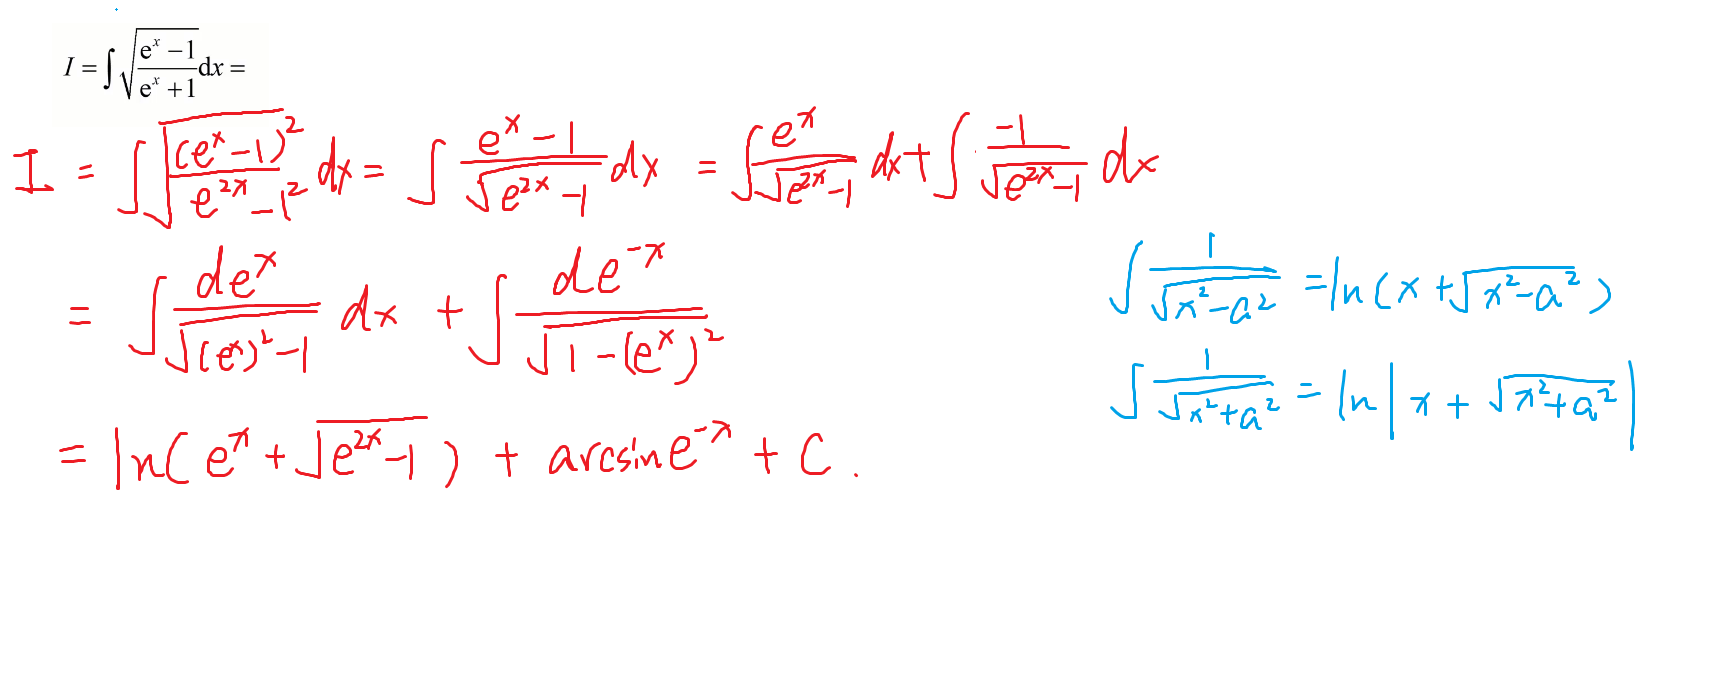 I = ∫ √((eˣ − 1)/(eˣ + 1)) dx =
I = ∫ √((eˣ − 1)²/(e²ˣ − 1²)) dx = ∫ (eˣ − 1)/√(e²ˣ − 1) dx = ∫ eˣ/√(e²ˣ − 1) dx + ∫ −1/√(e²ˣ − 1) dx
= ∫ deˣ/√((eˣ)² − 1) dx + ∫ de⁻ˣ/√(1 − (eˣ)²)
= ln(eˣ + √(e²ˣ − 1)) + arcsin e⁻ˣ + C.
∫ 1/√(x² − a²) = ln(x + √(x² − a²))
∫ 1/√(x² + a²) = ln|x + √(x² + a²)|